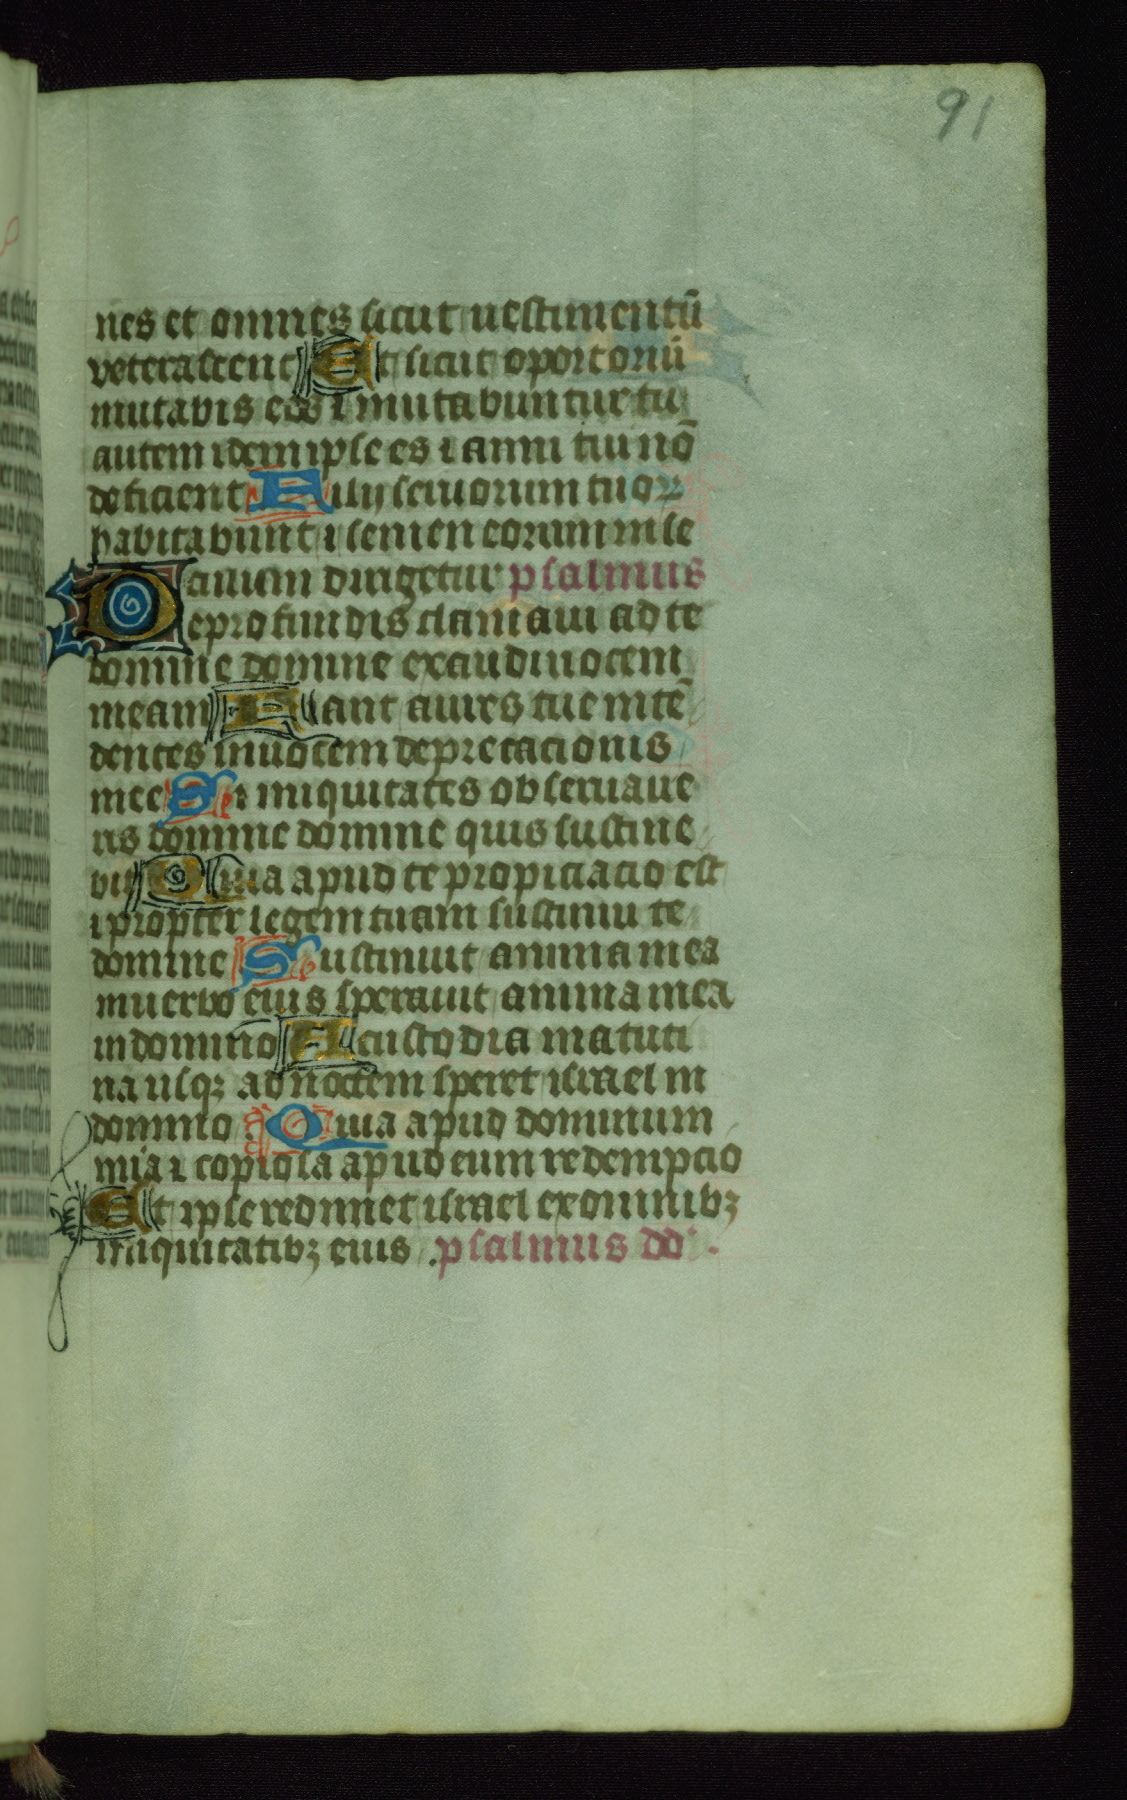 91
nes et omnes sicut uestimentū
veterascent Et sicut oportoriū
mutabis eos ⁊ mutabuntur tu
autem idem ipse es ⁊ anni tui nō
deficient Filij seruorum tuoꝝ
habitabunt ⁊ semen eorum in se
culum dirigetur psalmus
De profundis clamaui ad te
domine domine exaudi uocem
meam Fiant aures tue intē
dentes in uocem deprecacionis
mee Si iniquitates obseruaue
ris domine domine quis sustine
bit Quia apud te propiciacio est
⁊ propter legem tuam sustinui te
domine Sustinuit anima mea
in uerbo eius sperauit anima mea
in domino A custodia matuti
na usqꝫ ad noctem speret israel in
domino Quia apud dominum
mia ⁊ copiosa apud eum redempcio
Et ipse redimet israel ex omnibꝫ
iniquitatibꝫ eius . psalmus dd .